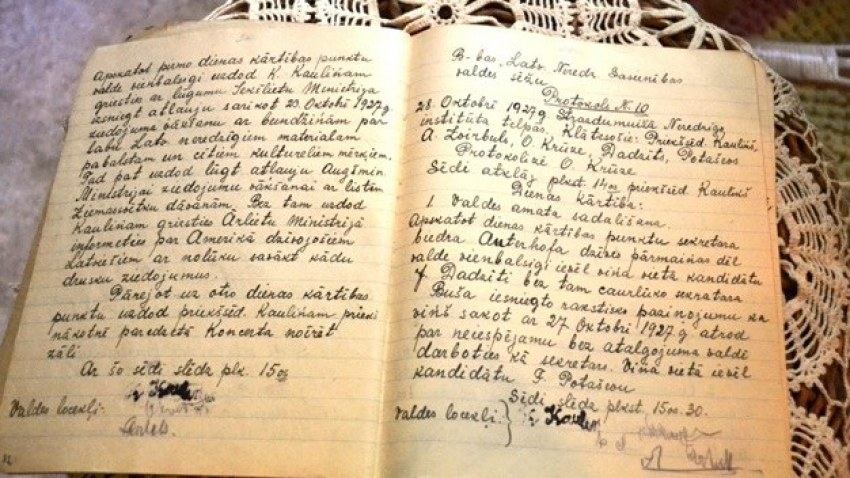 Apskatot pirmo dienas kārtības punktu
valde vienbalsīgi uzdod K. Kauliņam
griesties ar lūgumu Iekšlietu Ministrijā
izsniegt atļauju sarīkot 23. Oktobrī 1927 g.
ziedojumu vākšanu ar bundžiņām par
labu Latv. neredzīgiem materialam
pabalstam un citiem kultureliem mērķiem.
Tad pat uzdod lūgt atļauju Augšmin.
Ministrijai ziedojumu vākšanai ar listēm
Ziemassvētku dāvanām. Bez tam uzdod
Kauliņam griesties Ārlietu Ministrijā
informeties par Amerikā dzīvojošiem
Latviešiem ar nolūku savākt kādu
drusku ziedojumus.
Pārejot uz otro dienas kārtības
punktu uzdod priekšsēd. Kauliņam priekš
nākotnē paredzētā Koncerta noīrēt
zāli
Ar šo sēdi slēdza plk. 15 00
Valdes locekļi:
B-bas, Latv. Neredz. Savienības
valdes sēžu
Protokols № 10
28. Oktobrī 1927 g. Strazdumuižā Neredzīgo
institūta telpās, Klātesošie: Priekšsēd. Kauliņš,
A. Zvirbuls, O. Krūze, Dadzits, Potašovs
Protokolizē O. Krūze
Sēdi atklāj plkst. 14 00 priekšsēd. Kauliņš
Dienas Kārtība:
1. Valdes amata sadališana.
Apskatot dienas kārtības punktu sekretara
biedra Auterhofa dzīves pārmaiņas dēļ
valde vienbalsīgi ievēl viņa vietā kandidātu
Dadziti bez tam caurlūko sekretara
Buša iesniegto rakstisko paziņojumu ka
viņš sakot ar 27. Oktobri 1927 g. atrod
par neiespējamu bez atalgojuma valdē
darboties kā sekretars. Viņa vietā ievēl
kandidātu F. Potašovu
Sēdi slēdza plkst. 15 00. 30.
Valdes locekļi: